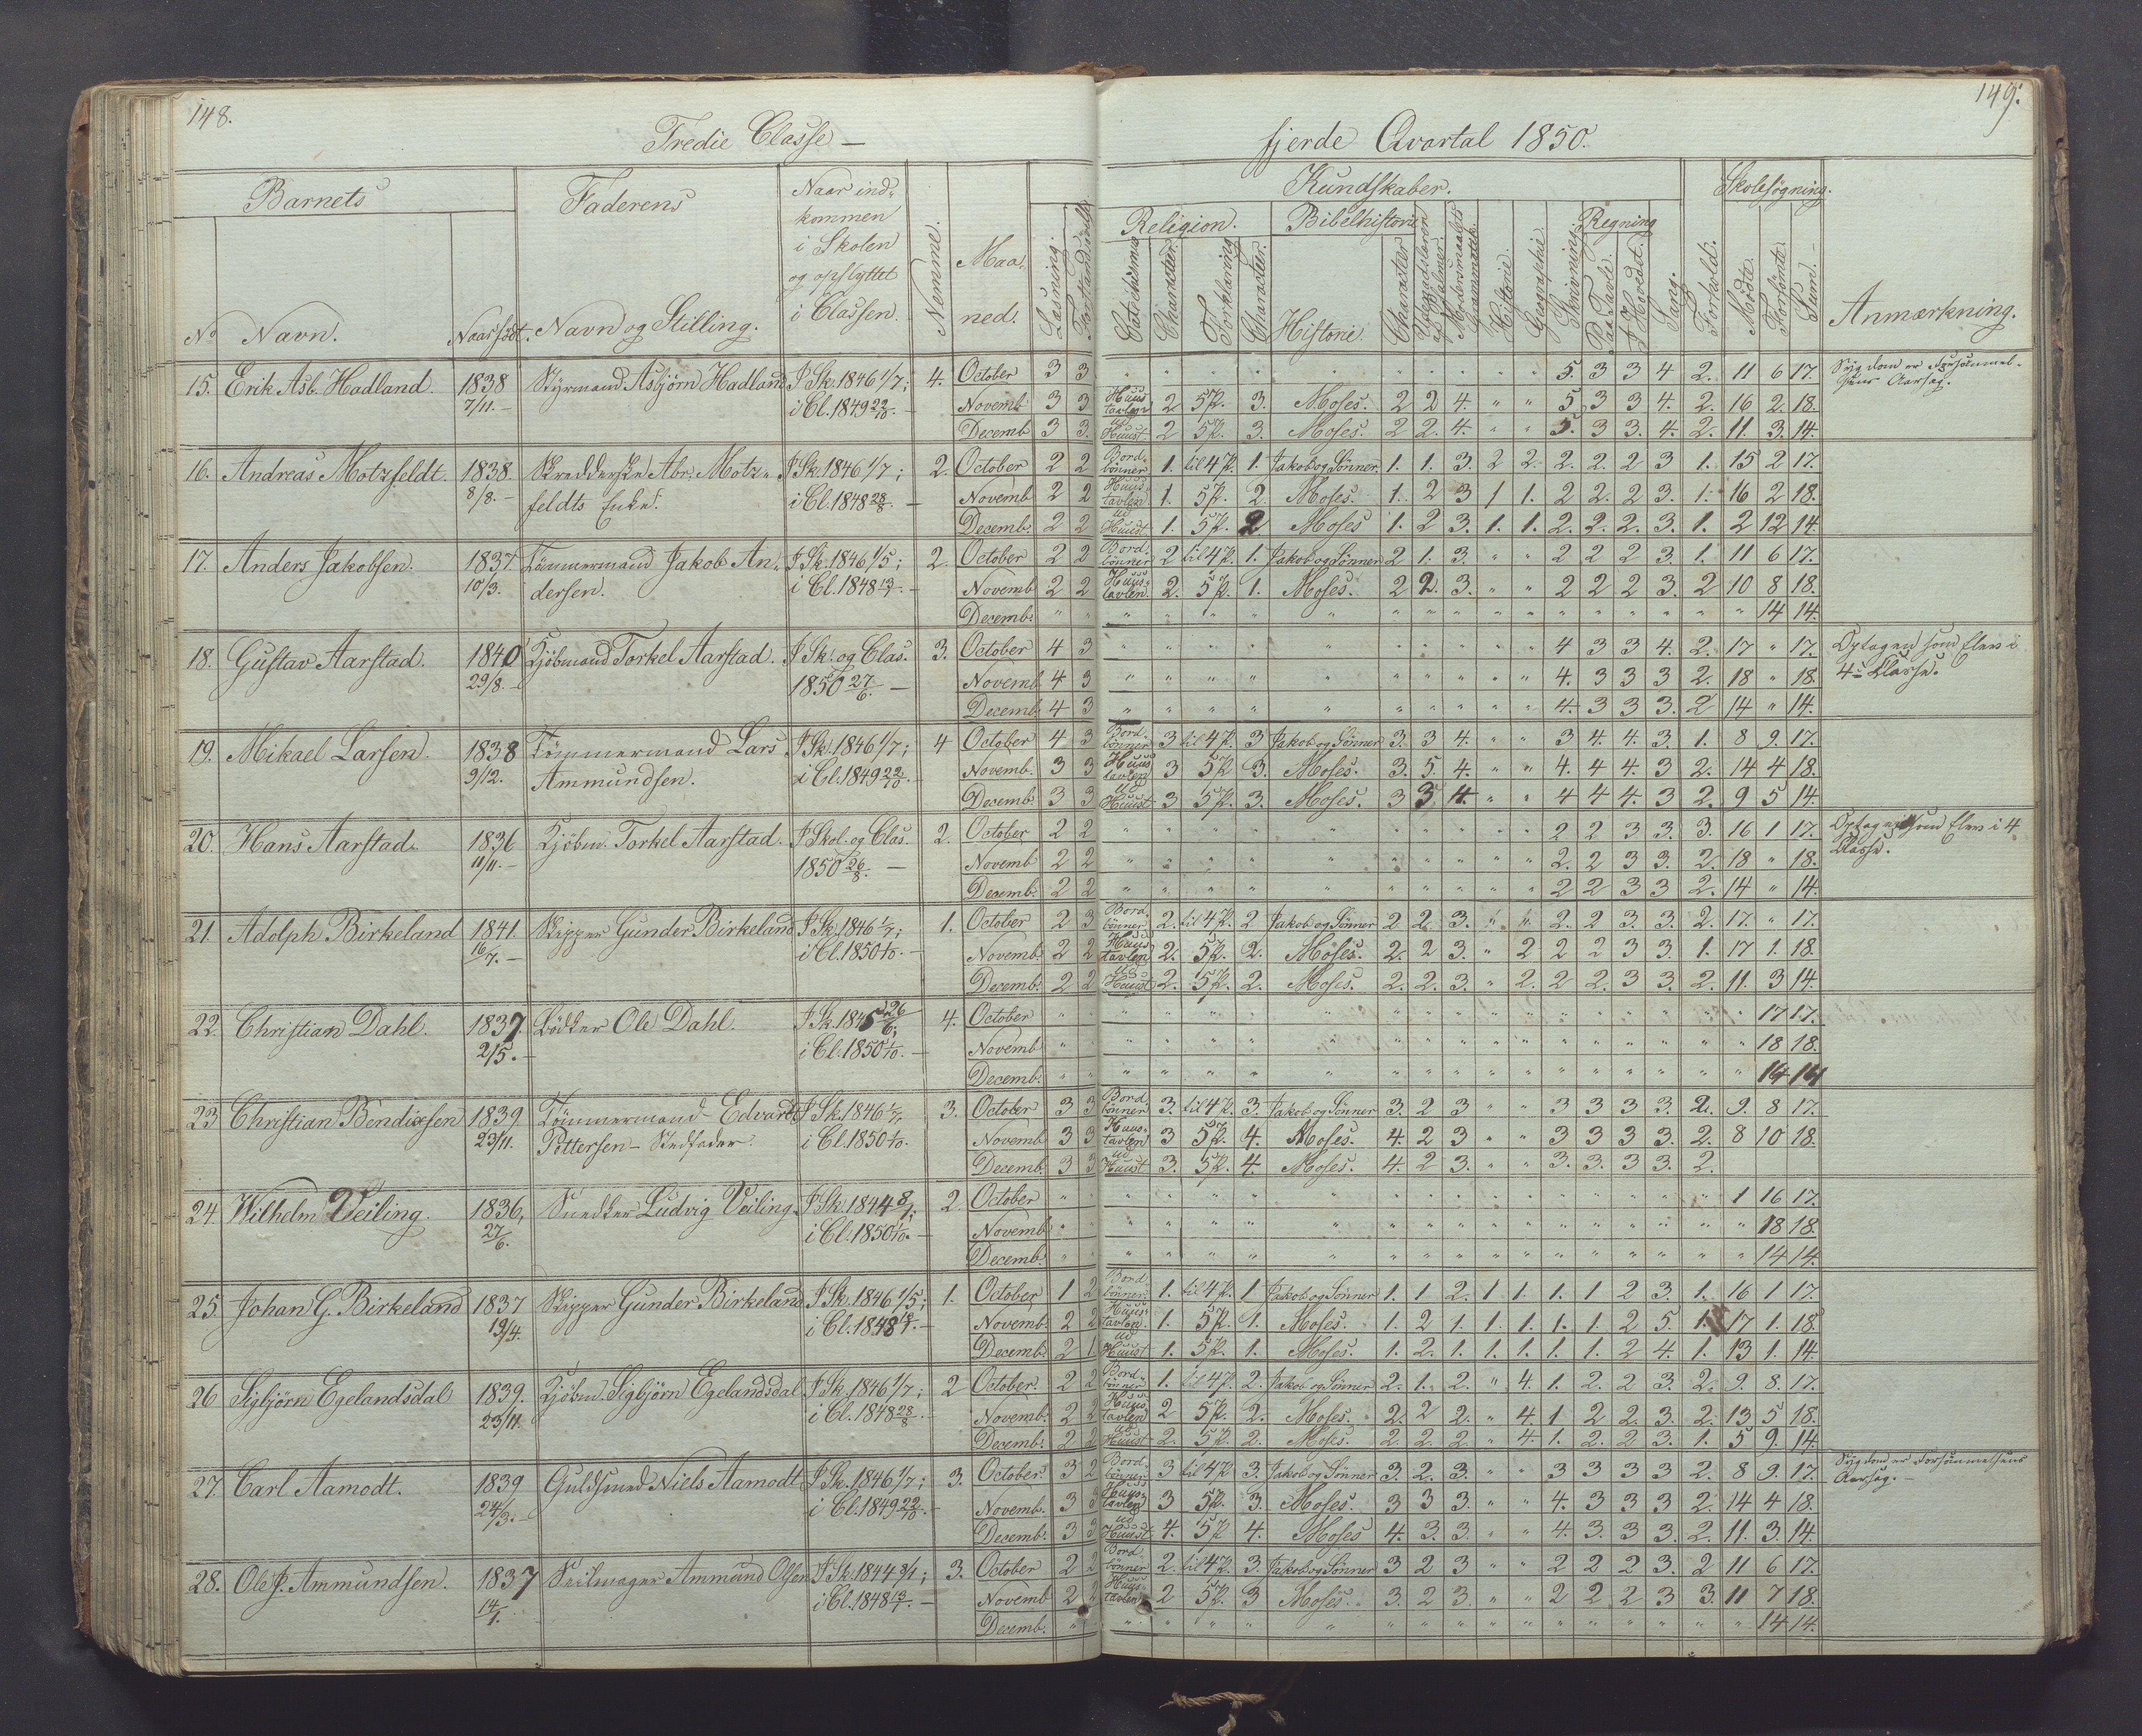 148.
Tredie Classe —
Barnets
Faderens
Naar ind-
kommen
i Skolen
og opflyttet
i Classen.
Nemme.
Maa-
ned.
Læsning.
No
Navn.
Naar født.
Navn og Stilling.
15. Erik Asb. Hadland. 1838 Styrmand Asbjörn Hadland I Sk. 1846 1/7; 4. October 3 3
7/11. — i Cl. 1849 22/10. — Novemb. 3 3
Decemb. 3 3.
16. Andreas Motzfeldt. 1838. Abr. Motz- I Sk. 1846 1/7; 2. October 2 2
8/8. — feldts Enke. i Cl. 1848 28/8. — Novemb. 2 2
Decemb. 2 2
17. Anders Jakobsen. 1837. Tömmermand Jakob An- I Sk. 1846 1/5; 2. October 2 2
10/3. dersen. i Cl. 1848 13/7. — Novemb. 2 2
Decemb. " "
18. Gustav Aarstad. 1840 Kjöbmand Torkel Aarstad. I Sk. og Clas. 3. October 4 3
29/8. — 1850 27/6. — Novemb. 4 3
Decemb. 4 3
19. Mikael Larsen. 1838 Tömmermand Lars I Sk. 1846 1/7; 4 October 4 3
9/12. Ammundsen. i Cl. 1849 22/10. Novemb. 3 3
Decemb. 3 3
20. Hans Aarstad. 1836 Kjöbm. Torkel Aarstad. I Skol. og Clas. 2. October 2 2
11/11. — 1850 26/8. — Novemb 2 2
Decemb. 2 2
21 Adolph Birkeland 1841. Skipper Gunder Birkeland I Sk. 1846 1/7; 1. October 2 3
16/7. — i Cl. 1850 1/10. — Novemb. 2 2
Decemb. 2 2
22. Christian Dahl. 1837. Bödker Ole Dahl. I Sk. 1845 26/6; 4. October " "
2/5. — i Cl. 1850 1/10. — Novemb. " "
Decemb. " "
23 Christian Bendixsen 1839. Tömmermand Edvard I Sk. 1846 1/7. 3. October 3 3
23/11. Pettersen — Stedfader. i Cl. 1850 1/10. Novemb. 3 3
Decemb. 3 3
24. Wilhelm Veiling. 1836, Snedker Ludvig Veiling. I Sk. 1844 2. October " "
27/6. i Cl. 1850 1/10. — Novemb. " "
Decemb. " "
25. Johan G. Birkeland 1837 Skipper Gunder Birkeland I Sk. 1846 1/5; 1. October 1 2
19/4. i Cl. 1848 Novemb. 2 2
Decemb. 2 1
26 Sigbjörn Egelandsdal 1839. Kjöbm. Sigbjörn Egelandsdal I Sk. 1846 1/7; 2 October. 2 2
23/11. i Cl. 1848 28/8. — Novemb. 2 2
Decemb. 2 2
27. Carl Aamodt. 1839 Guldsmed Niels Aamodt I Sk. 1846 1/7; 3. October. 3 2
24/3. — i Cl. 1849 22/10. — Novemb. 3 3
Decemb. 3 3
28. Ole J. Ammundsen. 1837 Seilmager Ammund Olsen I Sk. 1844; 3. October 2 2
14/1. i Cl. 1848 13/7. — Novemb 2 2
Decemb. "
149.
fjerde Qvartal 1850.
Kundskaber.
Skolesøgning.
Religion.
Bibelhistorie
Regning
Catechismus
Character.
Forklaring
Character.
Historie.
Character
Modersmaalets
Grammatik.
Historie.
Geographie.
Skrivning.
Paa Tavle.
I Hovedet.
Sang.
Forhold.
Mødte.
Forsömte.
Sum.
Anmærkning.
. . . . . . . . . . . 5. 3 3 4 2. 11 6 17. Sygdom er Forsömmel-
sens Aarsag.
Huus tavlen 2 5 P. 3. Moses. 2 2 4. " " 5 3 3 4. 2. 16 2. 18.
ud Huust. 2 5 P. 3. Moses. 2 2. 4. " " 5. 3 3. 4. 2. 11. 3. 14.
Bord-bönner 1. til 4 P. 1. Jakob og Sönner. 1. 1. 3. 2 2. 2. 2. 2 3 1. 15 2 17.
Huus-tavlen 1. 5 P. 2 Moses. 1. 2 3 1 1. 2 2. 2 3. 1. 16 2 18.
ud Huust 1. 5 P. 2 Moses 1. 2 3. 1. 1. 2. 2. 2. 3. 1. 2 12 14.
Bord-bönner 2 til 4 P. 1. Jakob og Sönner 2 1. 3. " " 2 2 2 3. 1. 11 6 17.
Huus-tavlen. 2. 5 P. 1. Moses. 2 2. 3. " " 2 2 2 3. 2 10 8 18.
" " " " " " " " " " " " " " " " 14 14.
" " " " " " " " " " 4 3 3 4. 2. 17 " 17. Optagen som Elev i
4de Classe.
" " " " " " " " " " 4. 3 3 3 2. 18 " 18
" " " " " " " " " " 4. 3 3 3. 2 14 " 14.
Bord-bönner 3 til 4 P. 3 Jakob og Sönner 3. 3 4. " " 3 4. 4. 3. 1. 8 9. 17.
Huus tavlen 3 5 P. 3. Moses. 3. 5. 4. " " 4. 4 4. 3 2. 14 4 18.
ud Huust 3 5 P. 3. Moses. 3 3 4. " " 4 4 4. 3 2. 9 5 14.
" " " " " " " " " " 2 2 3 3. 3. 16 1 17. Optagen som Elev i 4
Classe.
" " " " " " " " " " 2. 2 3 3. 2. 18 " 18.
" " " " " " " " " " 2 2 3 3 2. 14 " 14.
Bord-bönner 2. til 4 P. 2 Jakob og Sönner 2 2. 3. " " 2. 2 3. 3. 2. 17. " 17.
Huus tavlen 2. 5 P. 2. Moses. 2. 2 3. " 2 2 2 3 3. 1. 17 1. 18.
ud Huust 2. 5 P. 2. Moses. 2. 2. 3. " 2. 2 2. 3 3. 2. 11. 3 14.
" " " " " " " " " " " " " " " " 17 17.
" " " " " " " " " " " " " " " " 18 18.
" " " " " " " " " " " " " " " " 14 14
Bord-bönner 3. til 4 P. 3. Jakob og Sönner 3. 2 3 " " 3 3 3 3. 2. 9. 8 17.
Huus-tavlen 3 5 P. 4. Moses. 4. 2 3 " " 3 3 3 3. 2. 8 10 18.
ud Huust 3. 5 P. 4. Moses. 4. 2 3. " " 3. 3. 3 3. 2.
" " " " " " " " " " " " " " " 1 16 17.
" " " " " " " " " " " " " " " " 18 18.
" " " " " " " " " " " " " " " " 14 14.
Bord-bönner. 1. til 4 P. 1 Jakob og Sönner 1. 1 2. 1 1. 1. 1 2 3. 1. 16 1 17.
Huus-tavlen. 1. 5 P. 1. Moses. 1. 2 1. 1. 1. 1. 1. 2 5. 1. 17 1. 18.
ud Huust 1. 5 P. 1. Moses. 1. 2. 1. 1. 1. 1. 1. 2 4. 1. 13 1. 14.
Bord-bönner 1. til 4 P. 2. Jakob og Sönner 2. 1. 2. " 4. 1. 2. 2 3. 2. 9. 8. 17.
Huus-tavlen 2 5 P. 2. Moses. 2. 2 2. " 4. 1 2 2. 3. 2. 13 5 18.
ud Huust 2. 5 P. 2. Moses. 2. 2. 2. " 4. 1. 2. 2 3. 1. 5 9. 14.
Bord-bönner 3 til 4 P. 3. Jakob og Sönner 3. 2. 3. " " 3 3 3 3 2. 8 9. 17. Sygdom er Forsömmelsens
Aarsag. —
Huus-tavlen 3 5 P. 3. Moses. 3 3 3. " " 4. 3 3 3 2. 14 4 18.
ud Huust 4. 5 P. 4. Moses 4. 3. 3. " " 4. 3. 3 3. 2. 11. 3. 14.
Bord-bönner 2. til 4 P. 3. Jakob og Sönner 3 2 3 " " 2 2 2 3. 2 11 6 17.
Huus-tavlen 2 5 P. 3 Moses. 3. 2 3. " " 2 2 2 3 3. 11 7 18.
" " " " " " " " " " " " " " " " 14 14.